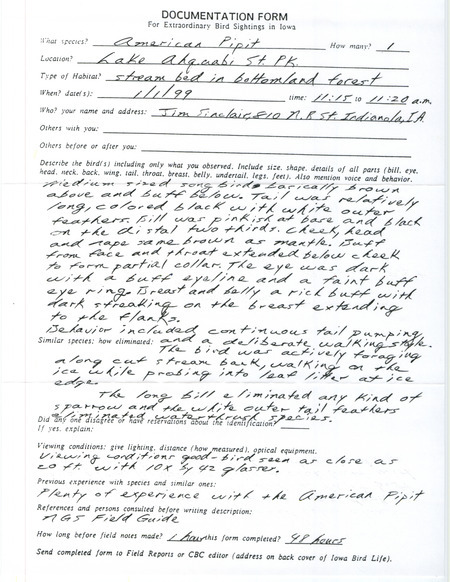 DOCUMENTATION FORM
For Extraordinary Bird Sightings in Iowa
What species? American Pipit How many? 1
Location? Lake Ahquabi St. Pk.
Type of Habitat? stream bed in bottomland forest
When? date(s): 1/1/99 time: 11:15 to 11:20 a.m.
Who? your name and address: Jim Sinclair, 810 N. R St. Indianola, IA.
Others with you:
Others before or after you:
Describe the bird(s) including only what you observed. Include size, shape, details of all parts (bill, eye,
head, neck, back, wing, tail, throat, breast, belly, undertail, legs, feet). Also mention voice and behavior.
Medium sized song bird - basically brown
above and buff below. Tail was relatively
long, colored black with white outer
feathers. Bill was pinkish at base and black
on the distal two thirds. Cheek, head
and nape same brown as mantle. Buff
from face and throat extended below cheek
to form partial collar. The eye was dark
with a buff eyeline and a faint buff
eye ring. Breast and belly a rich buff with
dark streaking on the breast extending
to the flanks.
Behavior included continuous tail pumping
Similar species: how eliminated: and a deliberate walking style.
The bird was actively foraging
along cut stream back, walking on the
ice while probing into leaf litter at ice
edge.
The long bill eliminated any kind of
sparrow and the white outer tail feathers
eliminated waterthrush species.
Did any one disagree or have reservations about the identification?
If yes, explain:
Viewing conditions: give lighting, distance (how measured), optical equipment.
Viewing conditions good - bird seen as close as
20 ft. with 10x by 42 glasses.
Previous experience with species and similar ones:
Plenty of experience with the American Pipit
References and persons consulted before writing description:
NGS Field Guide
How long before field notes made? 1 hour this form completed? 48 hours
Send completed form to Field Reports or CBC editor (address on back cover of Iowa Bird Life).